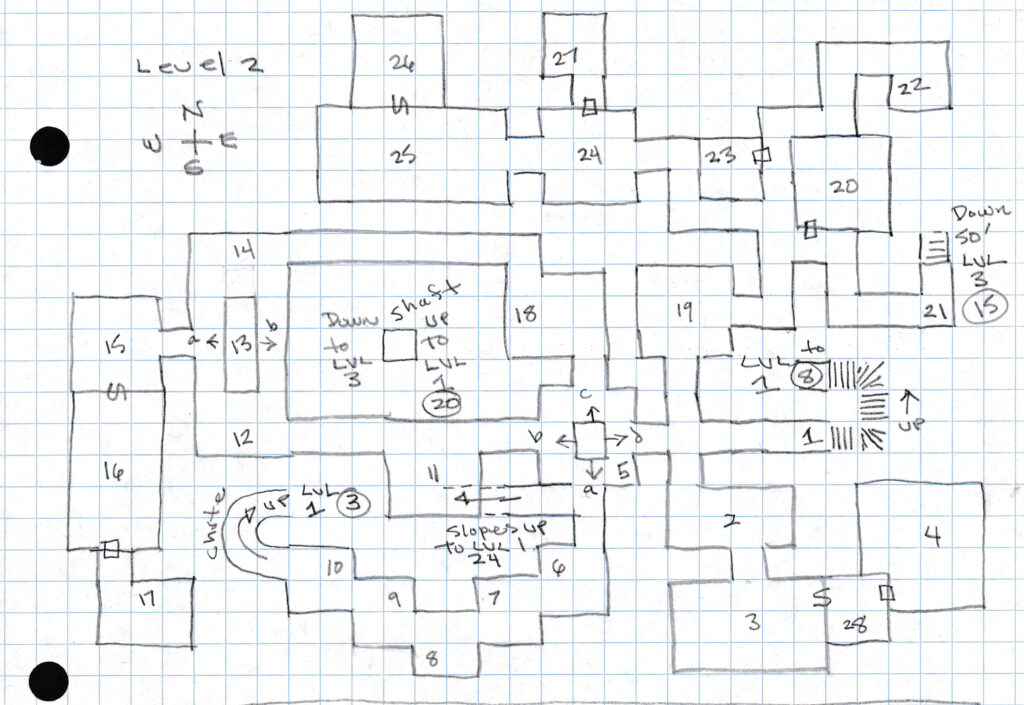 Level 2
N
W E
S
26
27
22
25
24
23
20
Down
50'
LVL
3
15
21
14
15
a
13
b
Down
to
LVL
3
shaft
up
to
LVL
1
20
18
19
LVL to
1 8
up
1
S
S
16
12
11
c
b d
a
5
chute
up LVL
1 3
slopes up
to LVL 1
24
2
4
10
9
7
6
8
3
S
28
17